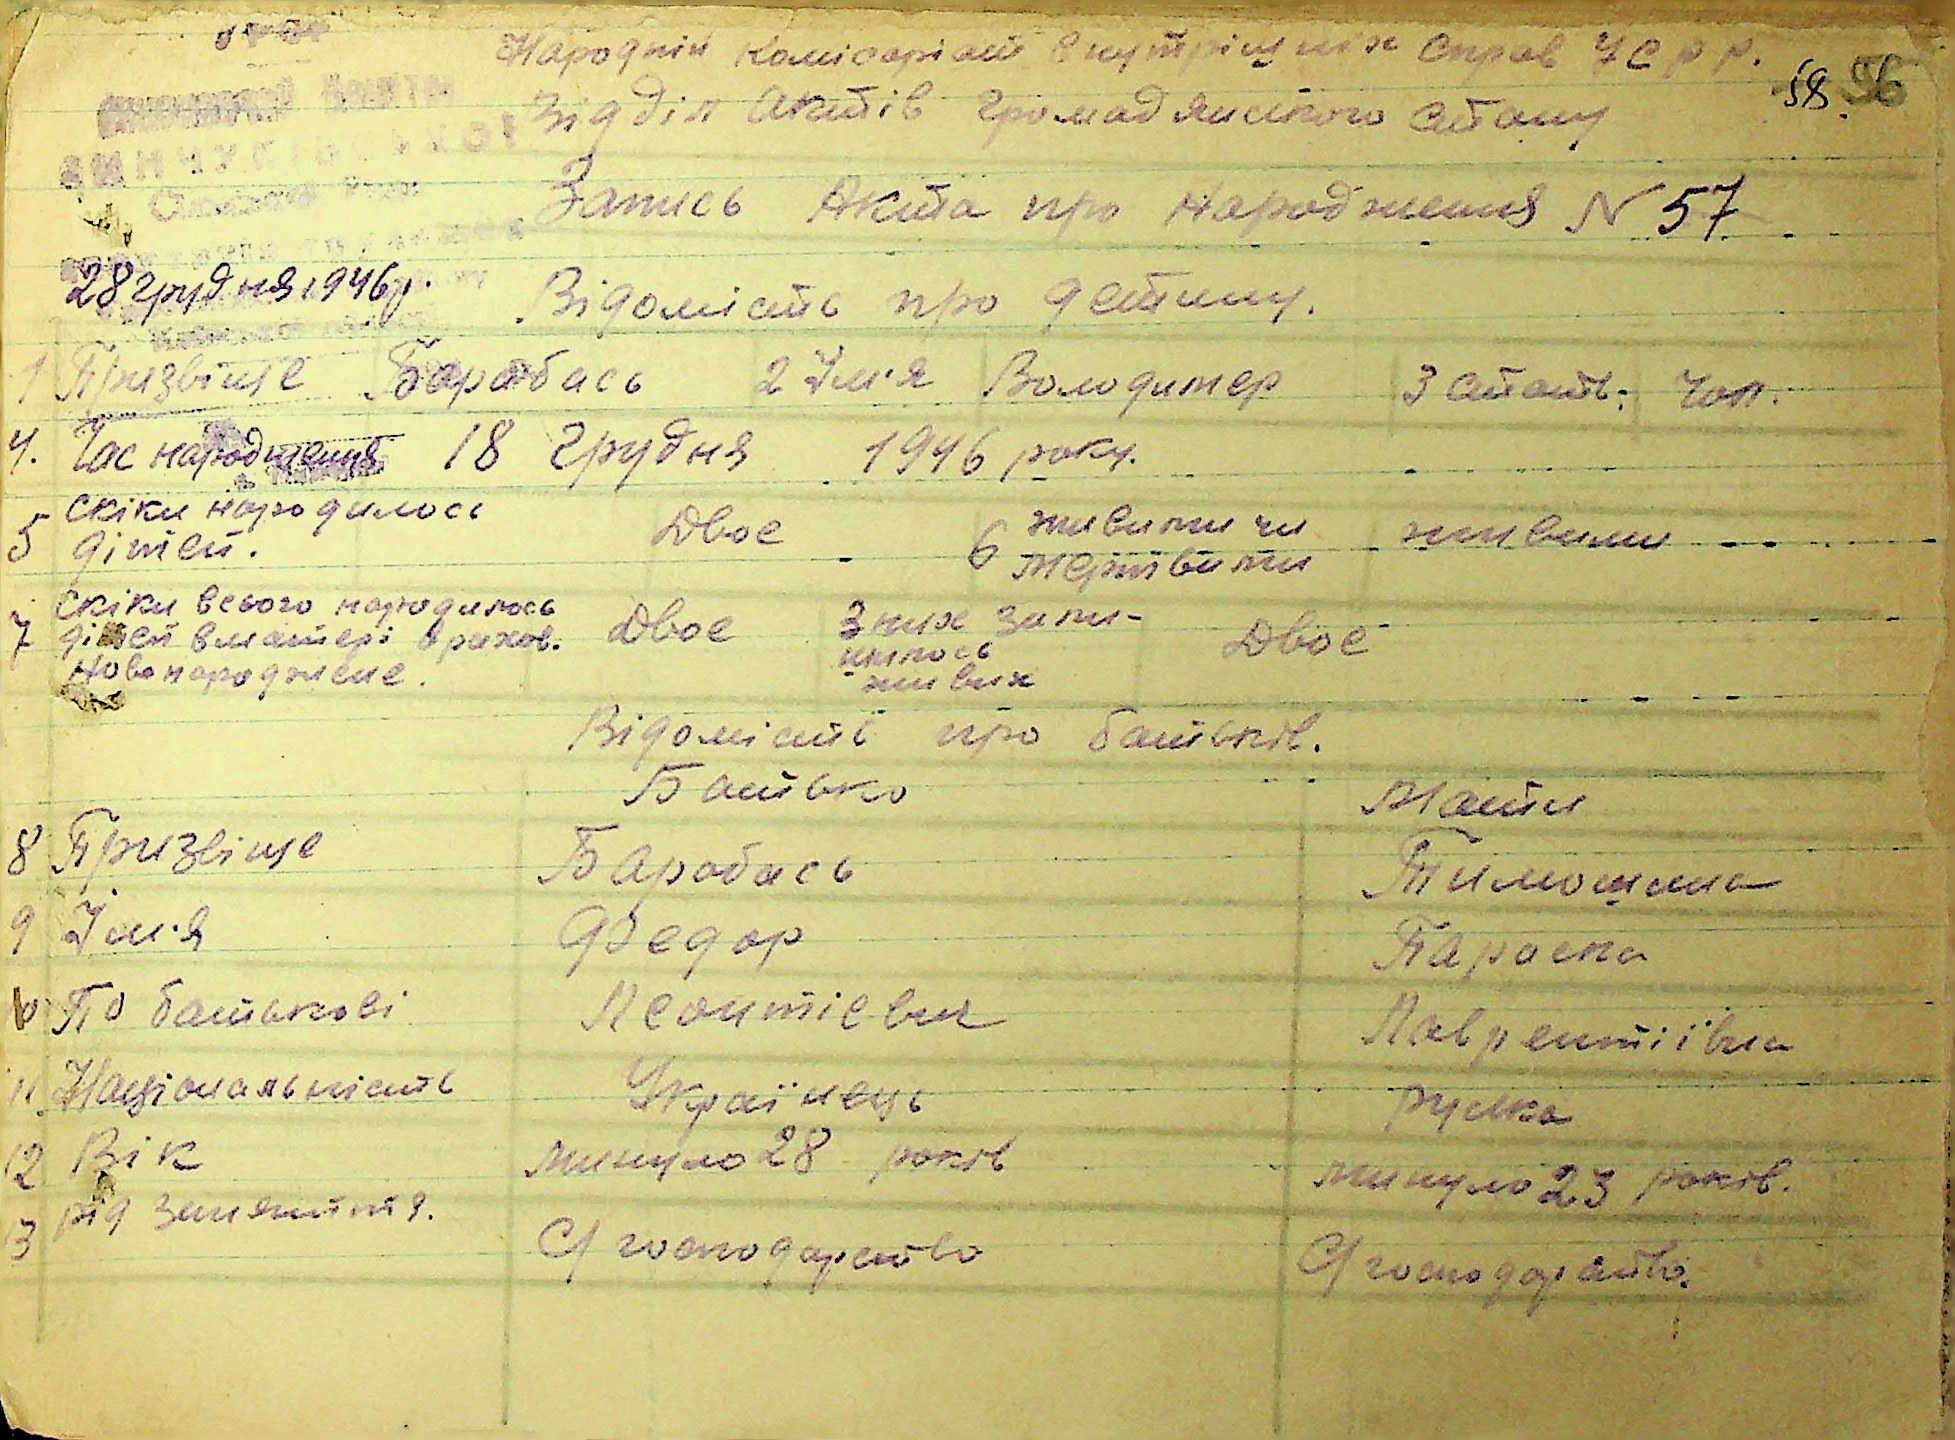 Народній комісаріат внутрішніх справ УСРР.
58 56
Відділ Актів громадянського стану
Запись Акта про народження N 57
28 грудня 1946 р.
Відомість про детину.
1 Призвіще Барабась 2 Імʼя Володимер 3 стать: чол.
4. Час народження 18 грудня 1946 року.
5 скіки народилось дітей. Двое 6 живими чи мертвими живими
7 скіки всього народилось дітей вматері врахов. новонароджене. Двое З них зали-
шилось живих Двое
Відомість про батьків.
Батько Мати
8 Призвіще Барабась Тимошина
9 Імʼя Федор Параска
10 По батькові Леонтіевич Лаврентіївна
11 Національність Українець руска
12 Вік минуло 28 років минуло 23 років.
13 рід заняття. С/господарство С/господарство.